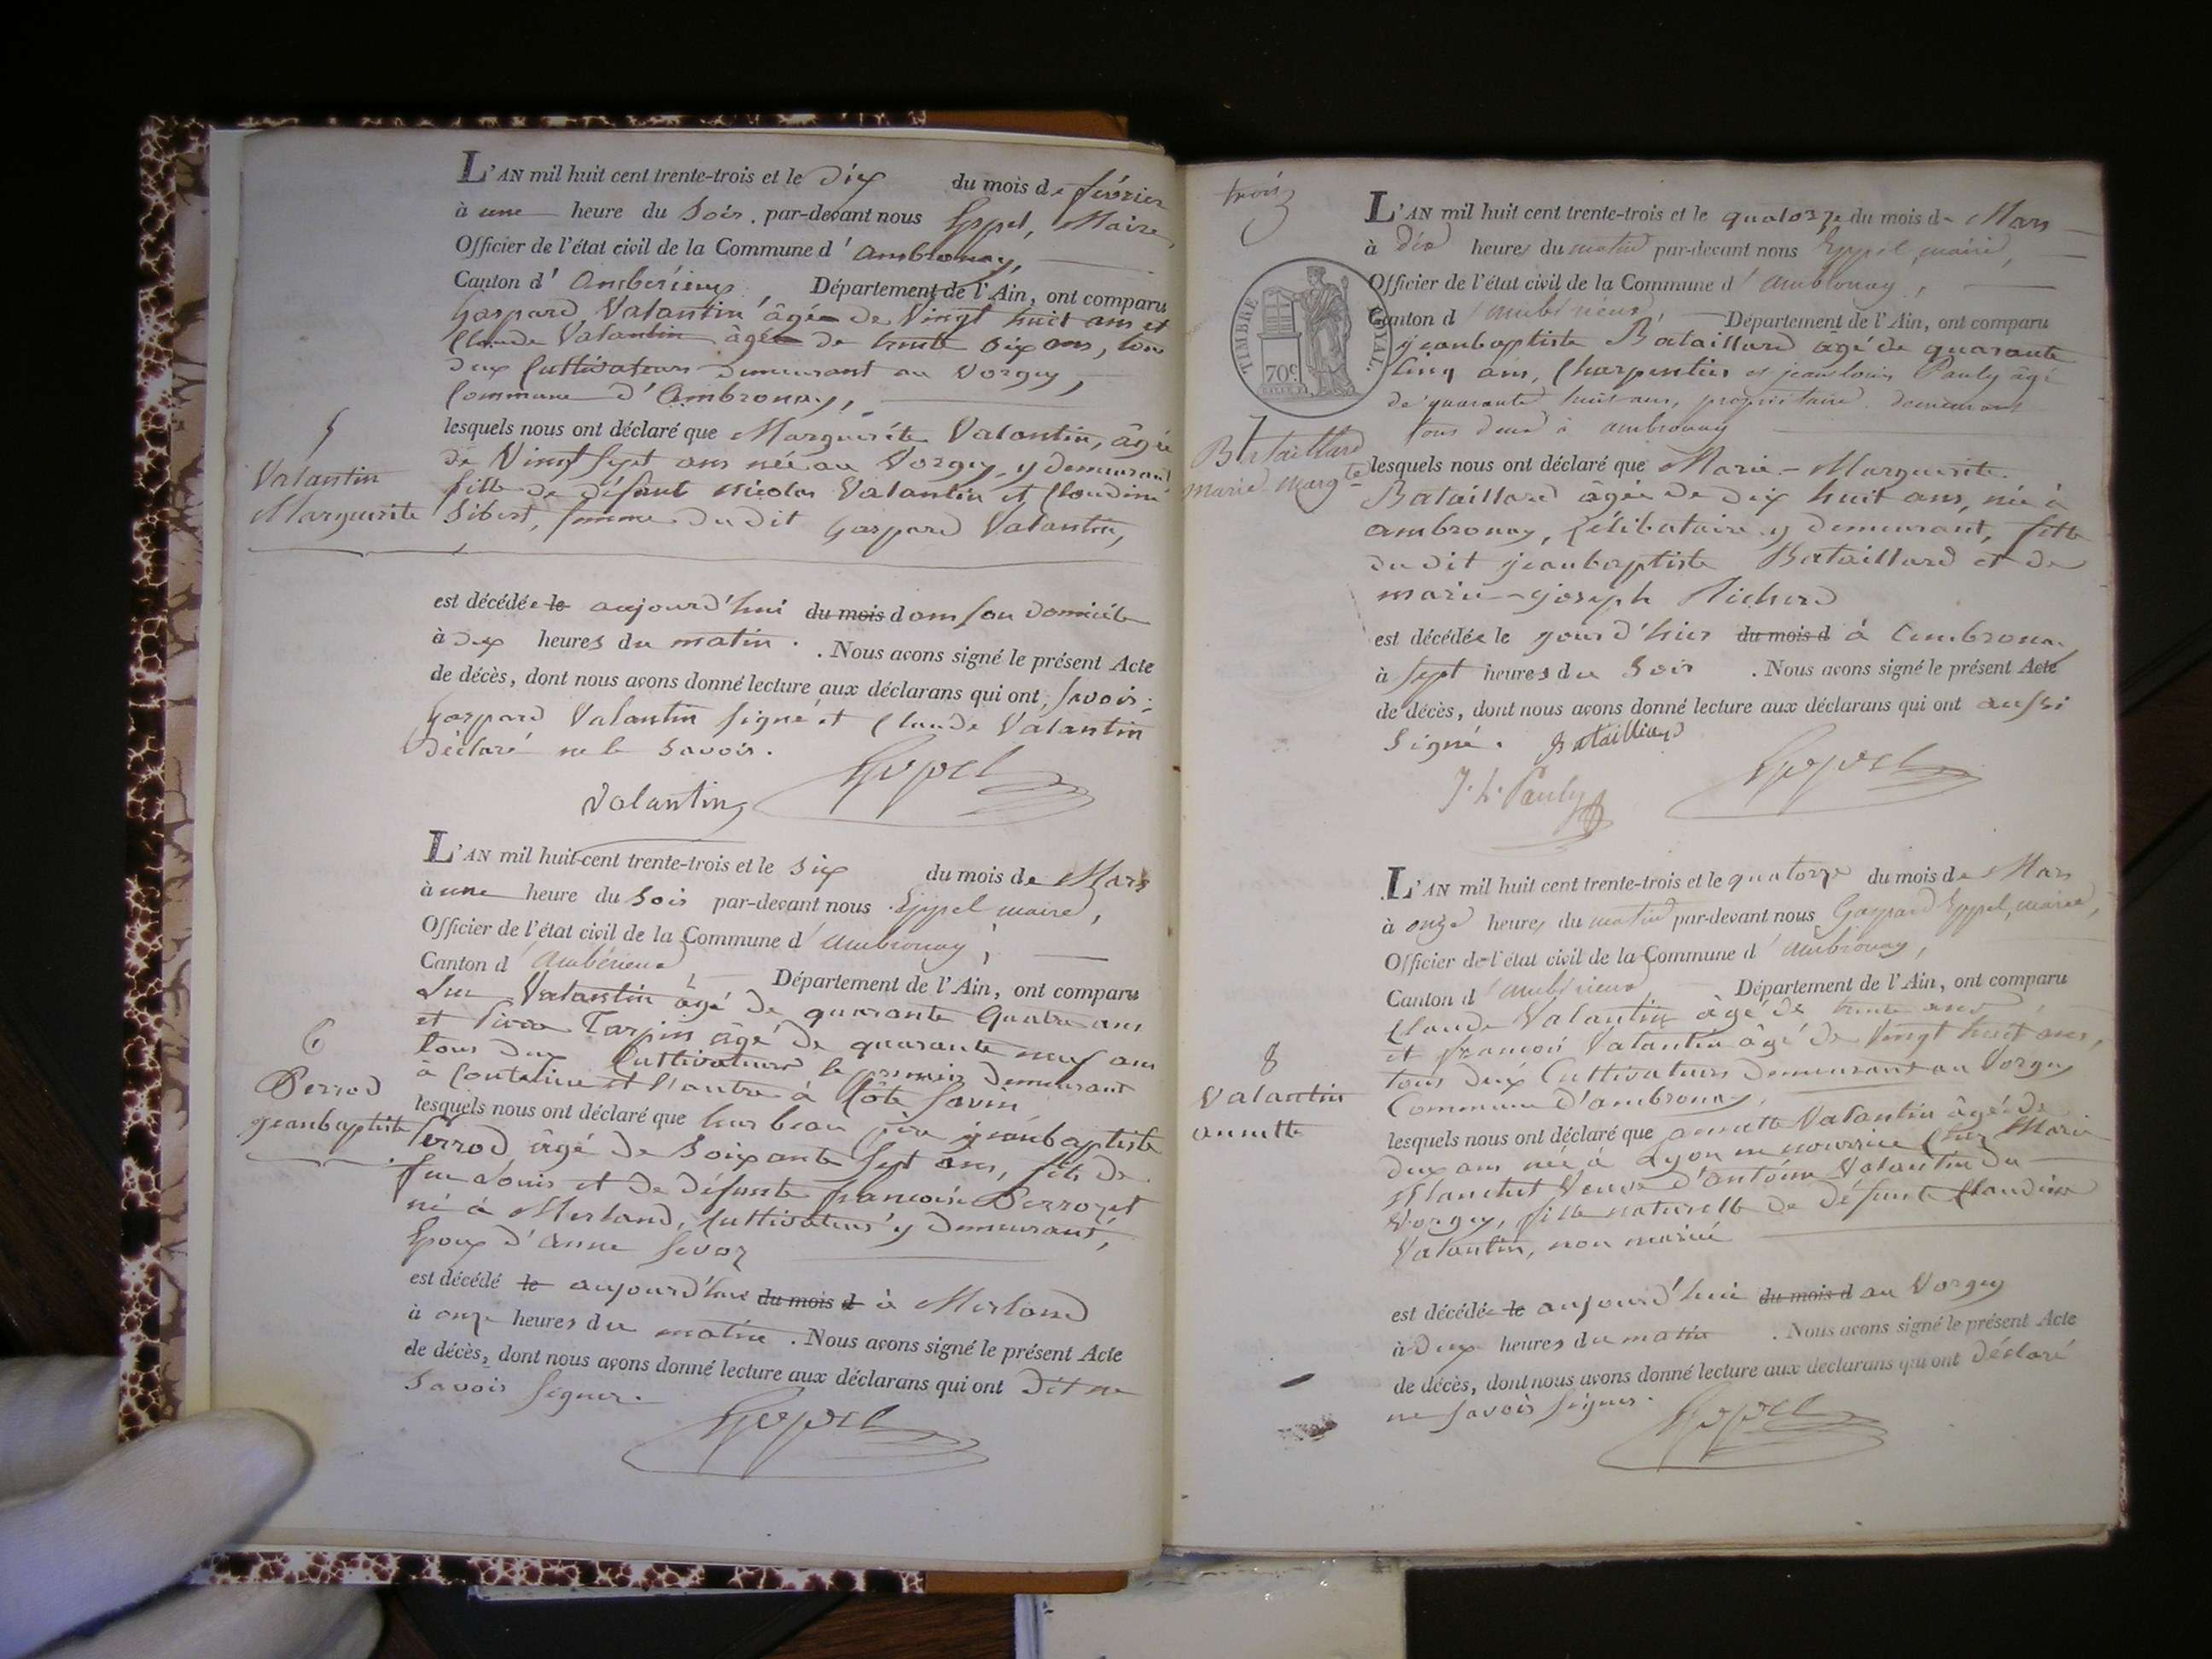 L'AN mil huit cent trente-trois et le dix du mois de février
à une heure du Soir, par-devant nous Eppel, Maire,
Officier de l'état civil de la Commune d'ambronay,
Canton d'ambérieux Département de l'Ain, ont comparu
Gaspard Valantin âgé de Vingt huit ans et
Claude Valantin âgé de trente Six ans, tous
deux Cultivateurs demeurant au Vorgey,
Commune d'Ambronay,
5
Valantin
Marguerite
lesquels nous ont déclaré que Marguerite Valantin, âgée
de Vingt Sept ans née au Vorgey, y demeurant
fille de défunt Nicolas Valantin et Claudine
Sibert, femme du dit Gaspard Valantin,
est décédée le aujourd'hui du mois dans son domicile
à dix heures du matin . Nous avons signé le présent Acte
de décès, dont nous avons donné lecture aux déclarans qui ont, savoir:
Gaspard Valantin signé et Claude Valantin
déclaré ne le savoir.
Valantin Eppel
L'AN mil huit cent trente-trois et le Six du mois de Mars
à une heure du Soir par-devant nous Eppel maire,
Officier de l'état civil de la Commune d'ambronay,
Canton d'ambérieux Département de l'Ain, ont comparu
Luc Valantin âgé de quarante Quatre ans
et Tarpin âgé de quarante neuf ans
tous deux Cultivateurs le premier demeurant
à et l'autre à Côte Savin
6
Perrod
jeanbaptiste
lesquels nous ont déclaré que leur beau père jeanbaptiste
Perrod âgé de Soixante Sept ans, fils de
feu Louis et de défunte françoise Perrozet
né à Merland, Cultivateur y demeurant,
Epoux d'anne
est décédé le aujourd'hui du mois d à Merland
à onze heures du matin . Nous avons signé le présent Acte
de décès, dont nous avons donné lecture aux déclarans qui ont dit ne
savoir signer.
Eppel
trois
TIMBRE ROYAL
70c
L'AN mil huit cent trente-trois et le quatorze du mois de Mars
à dix heures du matin par-devant nous Eppel, maire,
Officier de l'état civil de la Commune d'ambronay,
Canton d'ambérieux, Département de l'Ain, ont comparu
jeanbaptiste Bataillard âgé de quarante
Cinq ans, Charpentier et jean louis Pauly âgé
de quarante huit ans, propriétaire, demeurant
tous deux à ambronay
7
Bataillard
marie-margte
lesquels nous ont déclaré que Marie-Marguerite
Bataillard âgée de dix huit ans, née à
ambronay, Célibataire y demeurant, fille
du dit jeanbaptiste Bataillard et de
marie-joseph Richerd
est décédée le jour d'hier du mois d à ambronay
à Sept heures du Soir . Nous avons signé le présent Acte
de décès, dont nous avons donné lecture aux déclarans qui ont aussi
Signé. Bataillard
J. L. Pauly Eppel
L'AN mil huit cent trente-trois et le quatorze du mois de Mars
à onze heures du matin par-devant nous Gaspard Eppel, maire,
Officier de l'état civil de la Commune d'ambronay,
Canton d'ambérieux Département de l'Ain, ont comparu
Claude Valantin âgé de trente ans
et françois Valantin âgé de Vingt huit ans,
tous deux Cultivateurs demeurant au Vorgey
Commune d'ambronay,
8
Valantin
annette
lesquels nous ont déclaré que annette Valantin âgée de
deux ans née à Lyon en nourrice chez Marie
Blanchet Veuve d'antoine Valantin du
Vorgey, fille naturelle de défunte Claudine
Valantin, non mariée
est décédée le aujourd'hui du mois d au Vorgey
à deux heures du matin . Nous avons signé le présent Acte
de décès, dont nous avons donné lecture aux déclarans qui ont déclaré
ne savoir signer.
Eppel